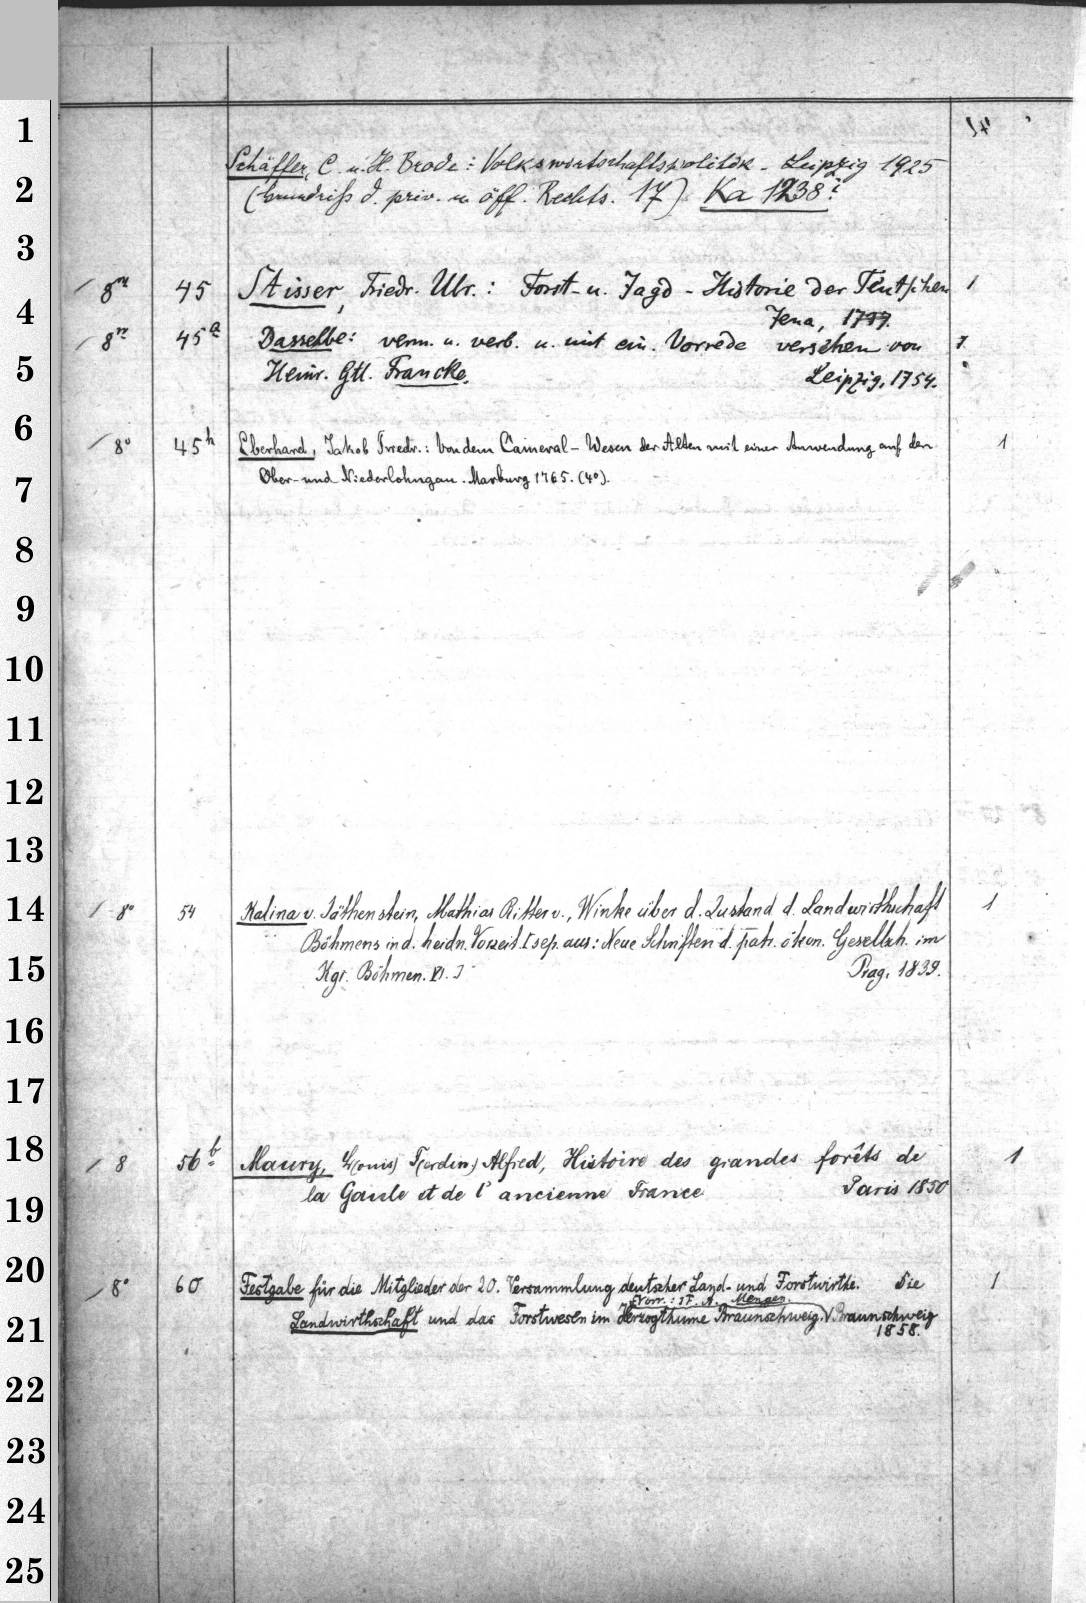 1
2
3
4
5
6
7
8
9
10
11
12
13
14
15
16
17
18
19
20
21
22
23
24
25
Schäffer, C. u. H. Brode: Volkswirtschaftspolitik. Leipzig 1925
(Grundriß d. priv. u. öff. Rechts. 17) Ka 1238
/ 8° 45 Stisser, Friedr. Ulr.: Forst- u. Jagd-Historie der Teutschen 1
Jena, 1737.
/ 8° 45a Dasselbe: verm. u. verb. u. mit ein. Vorrede versehen von 1
Heinr. Gtl. Francke. Leipzig, 1754.
/ 8° 45h Eberhard, Jakob Friedr.: Von dem Cameral-Wesen der Alten mit einer Anwendung auf den 1
Ober- und Niederlohngau. Marburg 1765. (4°).
/ 8° 54 Kalina v. Jäthenstein, Mathias Ritter v., Winke über d. Zustand d. Landwirthschaft 1
Böhmens in d. heidn. Vorzeit. [sep. aus: Neue Schriften d. patr. ökon. Gesellsch. im
Kgr. Böhmen. VI. ] Prag, 1839.
/ 8 56b Maury, L(ouis) F(erdin.) Alfred, Histoire des grandes forêts de 1
la Gaule et de l'ancienne France Paris 1850
/ 8° 60 Festgabe für die Mitglieder der 20. Versammlung deutscher Land- und Forstwirthe. Die 1
[Vorr.: F. A. Mengen.
Landwirthschaft und das Forstwesen im Herzogthume Braunschweig. Braunschweig
1858.